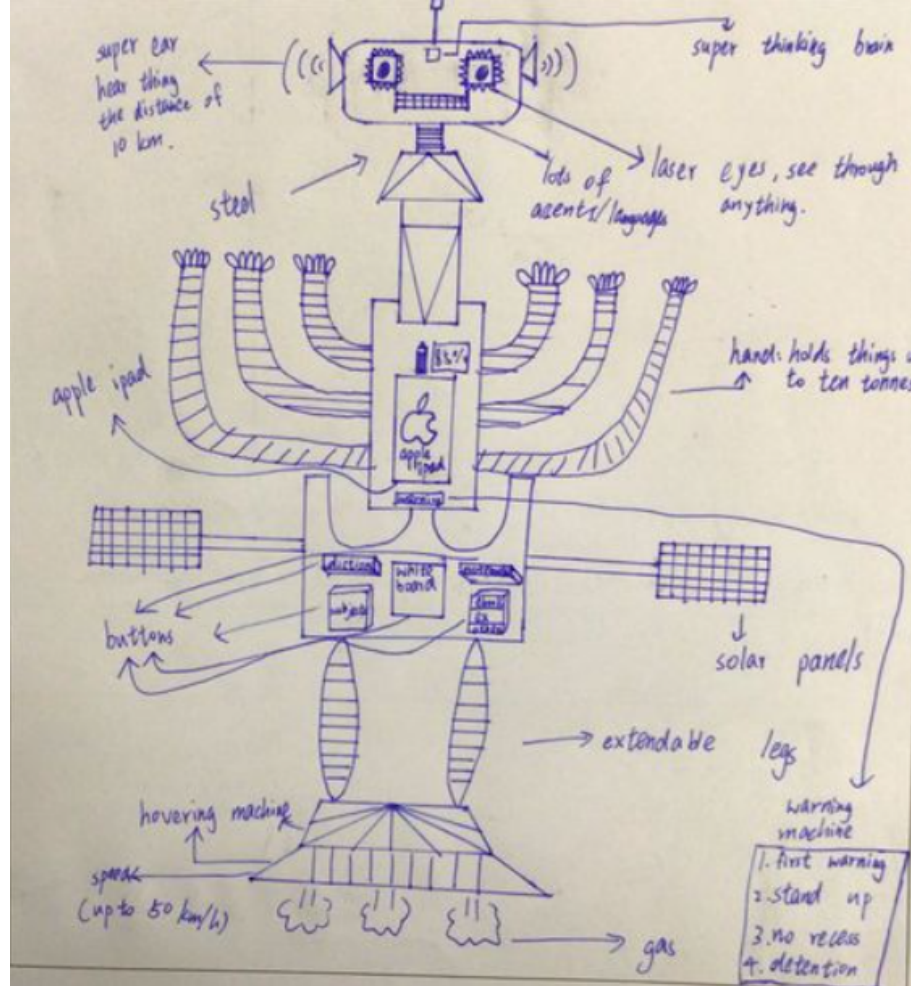 super ear
hear thing
the distance of
10 km.
super thinking brain
steel
lots of
acents/languages
laser eyes, see through
anything.
apple ipad
83%
apple
ipad
hand: holds things
to ten tonnes
warning
white
board
buttons
solar panels
extendable legs
hovering machine
speed
(up to 50 km/h)
gas
warning
machine
1. first warning
2. stand up
3. no recess
4. detention